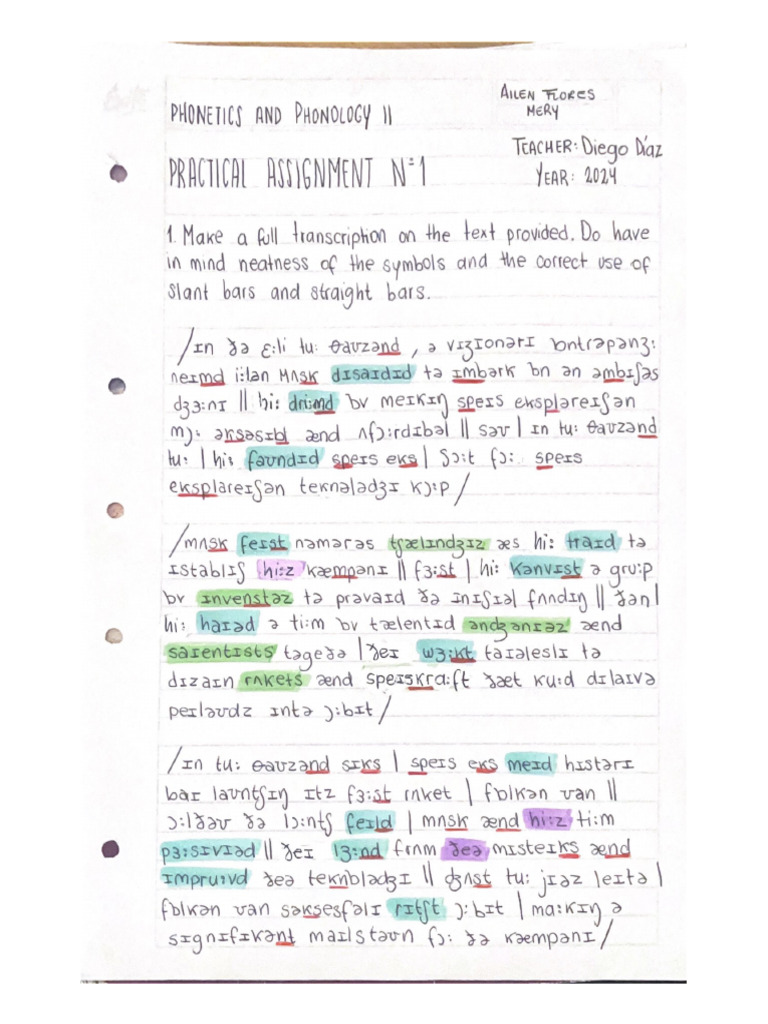 PHONETICS AND PHONOLOGY II
AILEN FLORES
MERY
TEACHER: Diego Díaz
PRACTICAL ASSIGNMENT N°1
YEAR: 2024
1. Make a full transcription on the text provided. Do have
in mind neatness of the symbols and the correct use of
slant bars and straight bars.
/ɪn ðə ɛ:li tu: θaʊzənd , ə vɪʒɪonərɪ ɒntrəpənʒ:
neɪmd i:lan mʌsk dɪsaɪdɪd tə ɪmbərk ɒn ən əmbɪʃəs
dʒɜ:nɪ || hi: dri:md ɒv meɪkɪŋ speɪs eksplərеɪʃən
mɔ: əksəsɪbl ænd ʌfɔ:rdɪbəl || səʊ | ɪn tu: θaʊzənd
tu: | hi: faʊndɪd speɪs eks | ʃɔ:t fɔ: speɪs
eksplərеɪʃən teknələdʒɪ kɔ:p/
/mʌsk feɪst nəmərəs tʃælɪndʒɪz æs hi: traɪd tə
ɪstablɪʃ hi:z kæmpənɪ || fɜ:st | hi: kənvɪst ə gru:p
ɒv ɪnvenstəz tə prəvaɪd ðə ɪnɪʃɪəl fʌndɪŋ || ðən |
hi: haɪəd ə ti:m ɒv tælentɪd əndʒənɪəz ænd
saɪentɪsts təgeðə | ðeɪ wɜ:kt taɪəleslɪ tə
dɪzaɪn rʌkets ænd speɪskra:ft ðæt ku:d dɪlaɪvə
peɪləʊdz ɪntə ɔ:bɪt/
/ɪn tu: θaʊzənd sɪks | speɪs eks meɪd hɪstərɪ
baɪ laʊntʃɪŋ ɪtz fɜ:st rʌket | fɒlkən ʊan ||
ɔ:lðəʊ ðə lɔ:ntʃ feɪld | mʌsk ænd hi:z ti:m
pɜ:sɪvɪəd || ðeɪ lɜ:nd frʌm ðeə mɪsteɪks ænd
ɪmpru:vd ðeə teknɒlədʒɪ || dʒʌst tu: jɪəz leɪtə |
fɒlkən ʊan səksesfəlɪ rɪtʃt ɔ:bɪt | ma:kɪŋ ə
sɪgnɪfɪkənt maɪlstəʊn fɔ: ðə kæmpənɪ/